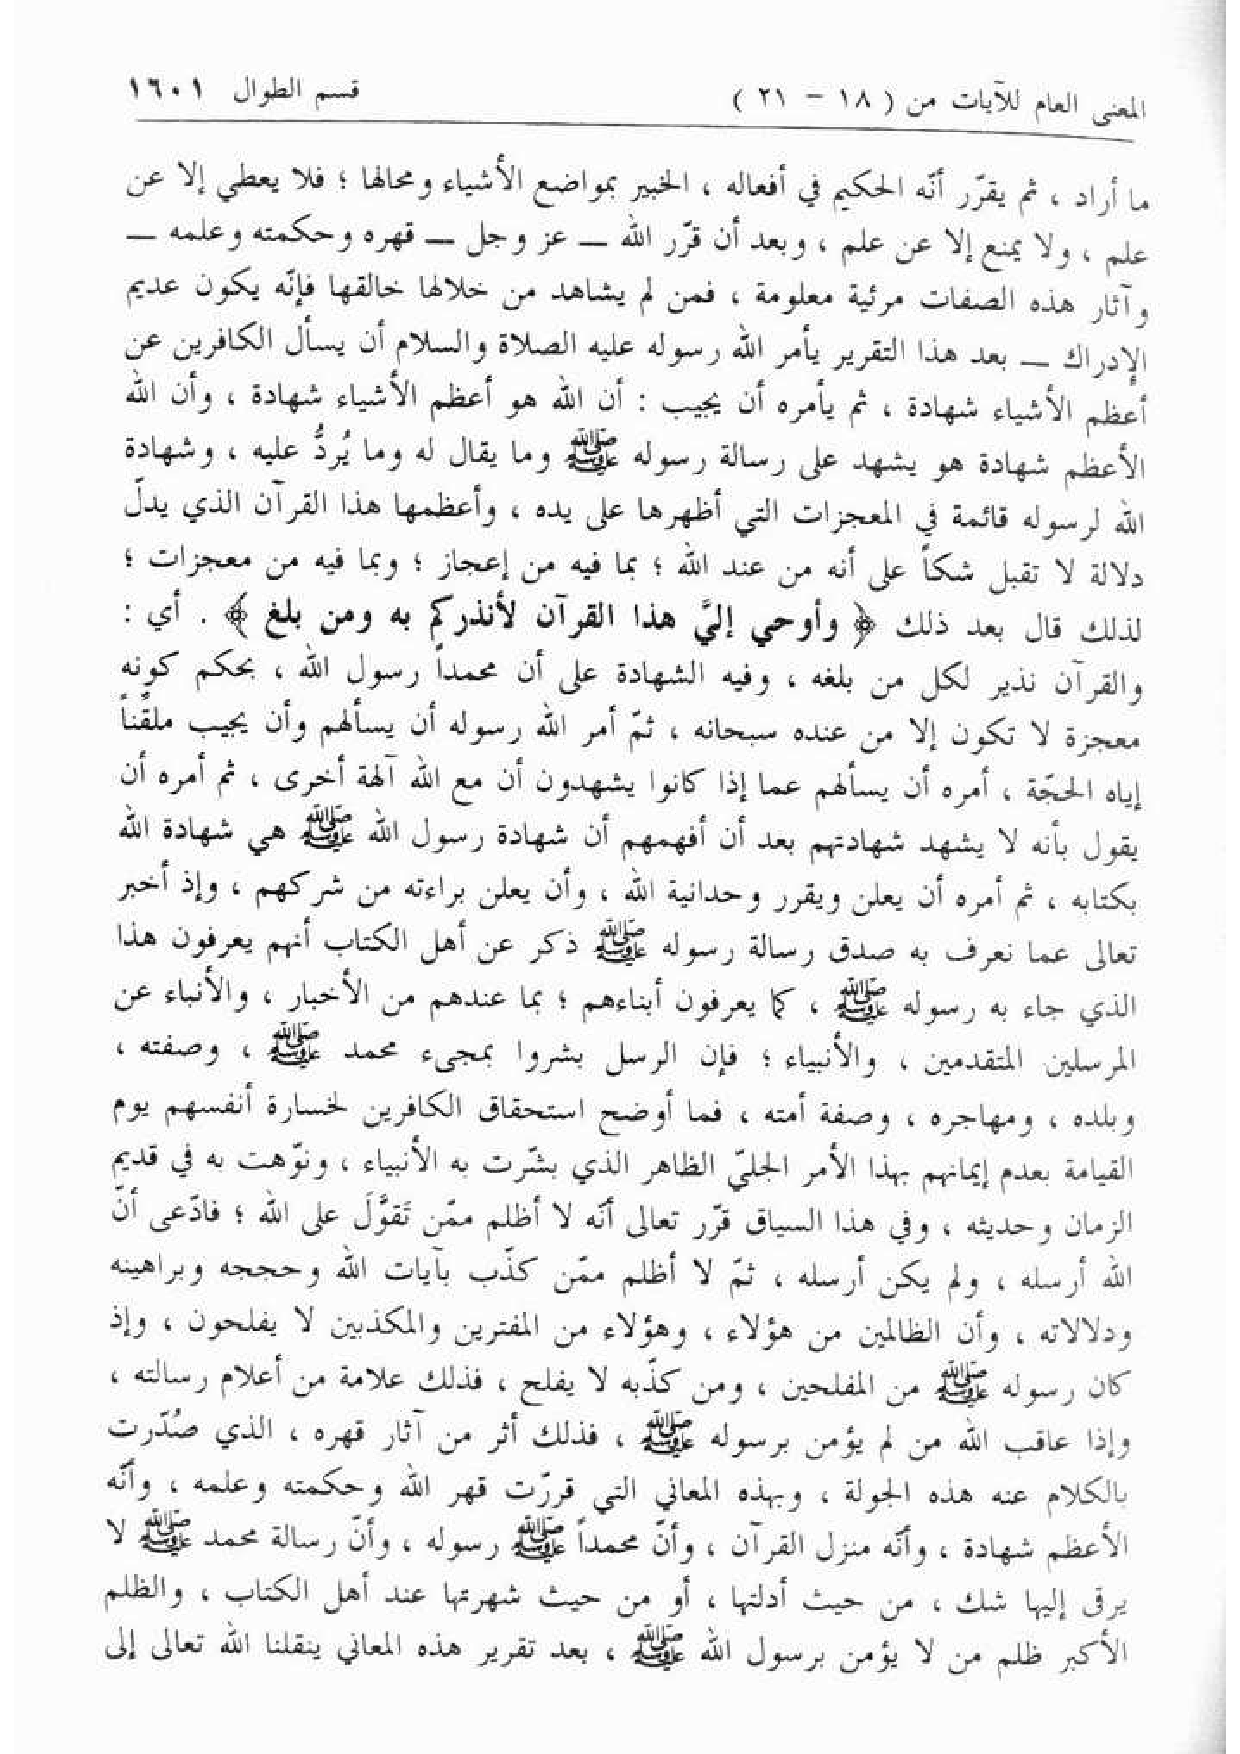 المعنى العام للآيات من ( ١٨ – ٢١ ) قسم الطوال ١٦٠١
ما أراد ، ثم يقرّر أنّه الحكيم في أفعاله ، الخبير بمواضع الأشياء ومحالها ؛ فلا يعطي إلا عن
علم ، ولا يمنع إلا عن علم ، وبعد أن قرّر الله — عز وجل — قهره وحكمته وعلمه —
وآثار هذه الصفات مرئية معلومة ، فمن لم يشاهد من خلالها خالقها فإنّه يكون عديم
الإدراك — بعد هذا التقرير يأمر الله رسوله عليه الصلاة والسلام أن يسأل الكافرين عن
أعظم الأشياء شهادة ، ثم يأمره أن يجيب : أن الله هو أعظم الأشياء شهادة ، وأن الله
الأعظم شهادة هو يشهد على رسالة رسوله ﷺ وما يقال له وما يُردُّ عليه ، وشهادة
الله لرسوله قائمة في المعجزات التي أظهرها على يده ، وأعظمها هذا القرآن الذي يدلّ
دلالة لا تقبل شكاً على أنه من عند الله ؛ بما فيه من إعجاز ؛ وبما فيه من معجزات ؛
لذلك قال بعد ذلك ﴿ وأوحي إليَّ هذا القرآن لأنذركم به ومن بلغ ﴾ . أي :
والقرآن نذير لكل من بلغه ، وفيه الشهادة على أن محمداً رسول الله ، بحكم كونه
معجزة لا تكون إلا من عنده سبحانه ، ثمّ أمر الله رسوله أن يسألهم وأن يجيب ملقّناً
إياه الحجّة ، أمره أن يسألهم عما إذا كانوا يشهدون أن مع الله آلهة أخرى ، ثم أمره أن
يقول بأنه لا يشهد شهادتهم بعد أن أفهمهم أن شهادة رسول الله ﷺ هي شهادة الله
بكتابه ، ثم أمره أن يعلن ويقرر وحدانية الله ، وأن يعلن براءته من شركهم ، وإذ أخبر
تعالى عما نعرف به صدق رسالة رسوله ﷺ ذكر عن أهل الكتاب أنهم يعرفون هذا
الذي جاء به رسوله ﷺ ، كما يعرفون أبناءهم ؛ بما عندهم من الأخبار ، والأنباء عن
المرسلين المتقدمين ، والأنبياء ؛ فإن الرسل بشروا بمجيء محمد ﷺ ، وصفته ،
وبلده ، ومهاجره ، وصفة أمته ، فما أوضح استحقاق الكافرين لخسارة أنفسهم يوم
القيامة بعدم إيمانهم بهذا الأمر الجليّ الظاهر الذي بشّرت به الأنبياء ، ونوّهت به في قديم
الزمان وحديثه ، وفي هذا السياق قرّر تعالى أنّه لا أظلم ممّن تَقوَّلَ على الله ؛ فادّعى أنّ
الله أرسله ، ولم يكن أرسله ، ثمّ لا أظلم ممّن كذّب بآيات الله وحججه وبراهينه
ودلالاته ، وأن الظالمين من هؤلاء ، وهؤلاء من المفترين والمكذبين لا يفلحون ، وإذ
كان رسوله ﷺ من المفلحين ، ومن كذّبه لا يفلح ، فذلك علامة من أعلام رسالته ،
وإذا عاقب الله من لم يؤمن برسوله ﷺ ، فذلك أثر من آثار قهره ، الذي صُدّرت
بالكلام عنه هذه الجولة ، وبهذه المعاني التي قررّت قهر الله وحكمته وعلمه ، وأنّه
الأعظم شهادة ، وأنّه منزل القرآن ، وأنّ محمداً ﷺ رسوله ، وأنّ رسالة محمد ﷺ لا
يرقى إليها شك ، من حيث أدلتها ، أو من حيث شهرتها عند أهل الكتاب ، والظلم
الأكبر ظلم من لا يؤمن برسول الله ﷺ ، بعد تقرير هذه المعاني ينقلنا الله تعالى إلى